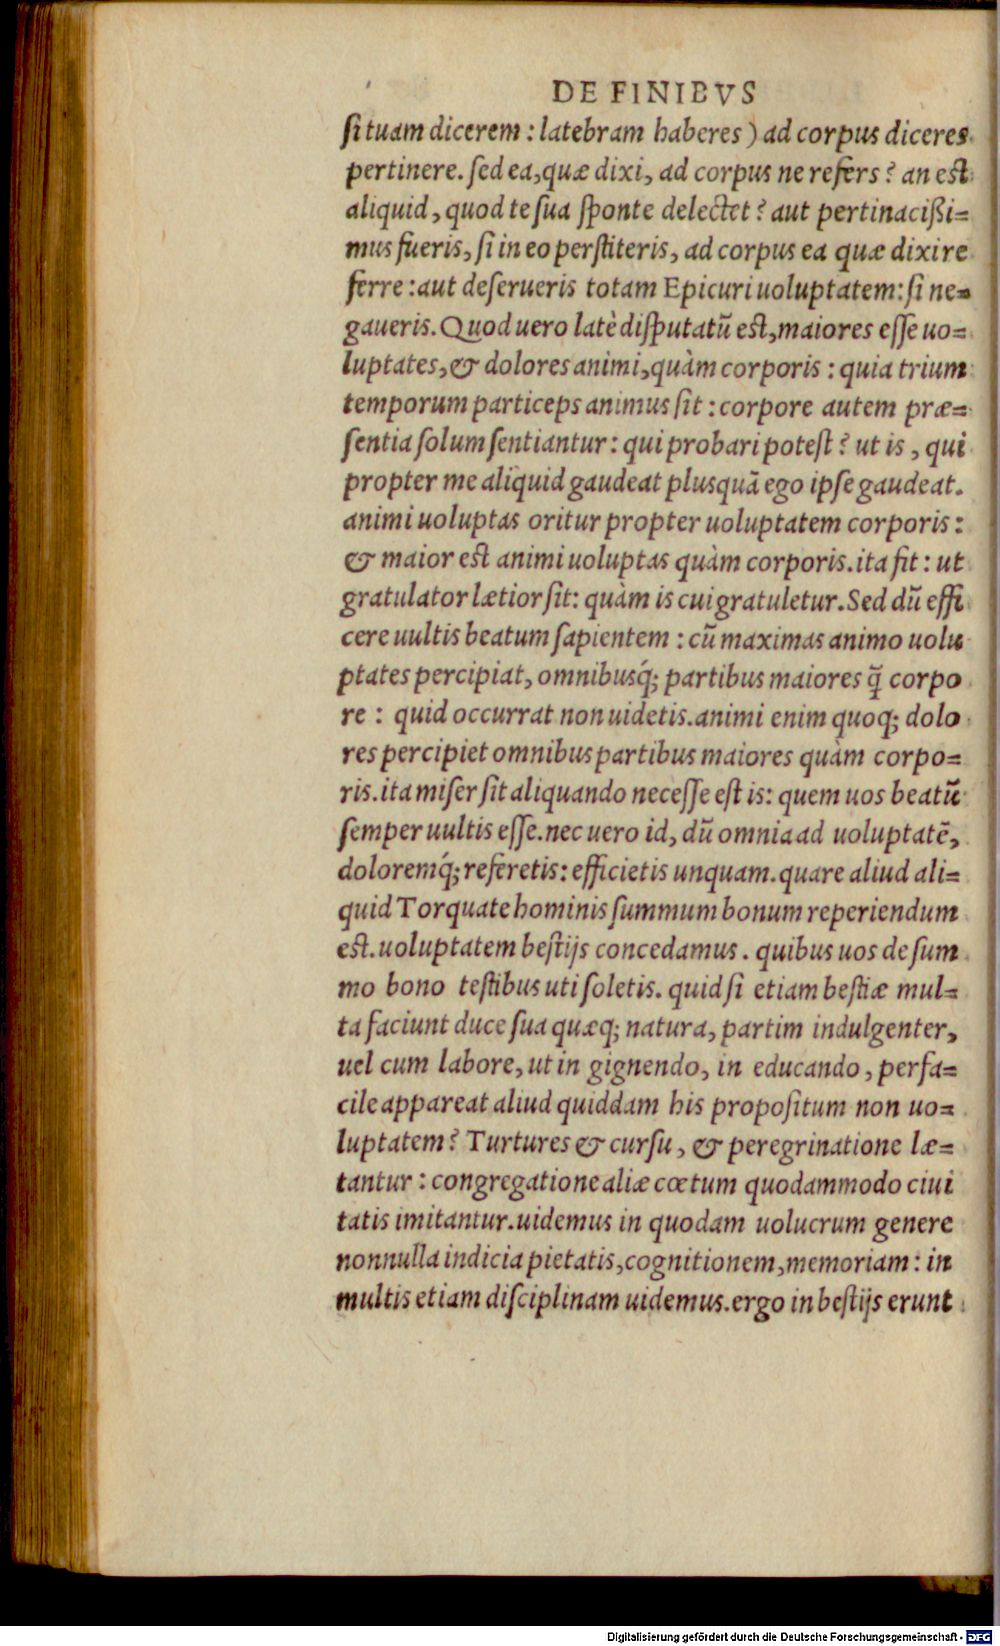 DE FINIBVS
si tuam dicerem : latebram haberes ) ad corpus diceres
pertinere. sed ea, quæ dixi, ad corpus ne refers ? an est
aliquid, quod te sua sponte delectet ? aut pertinacißi=
mus fueris, si in eo perstiteris, ad corpus ea quæ dixi re
ferre : aut deserueris totam Epicuri uoluptatem : si ne=
gaueris. Quod uero latè disputatũ est, maiores esse uo=
luptates, & dolores animi, quàm corporis : quia trium
temporum particeps animus sit : corpore autem præ=
sentia solum sentiantur : qui probari potest ? ut is , qui
propter me aliquid gaudeat plusquã ego ipse gaudeat.
animi uoluptas oritur propter uoluptatem corporis :
& maior est animi uoluptas quàm corporis. ita fit : ut
gratulator lætior sit : quàm is cui gratuletur. Sed dũ effi
cere uultis beatum sapientem : cũ maximas animo uolu
ptates percipiat, omnibusq́; partibus maiores q̃ corpo
re : quid occurrat non uidetis. animi enim quoq; dolo
res percipiet omnibus partibus maiores quàm corpo=
ris. ita miser sit aliquando necesse est is : quem uos beatũ
semper uultis esse. nec uero id, dũ omnia ad uoluptatẽ,
doloremq́; referetis : efficietis unquam. quare aliud ali=
quid Torquate hominis summum bonum reperiendum
est. uoluptatem bestijs concedamus . quibus uos de sum
mo bono testibus uti soletis. quid si etiam bestiæ mul=
ta faciunt duce sua quæq; natura, partim indulgenter,
uel cum labore, ut in gignendo, in educando , perfa=
cile appareat aliud quiddam his propositum non uo=
luptatem ? Turtures & cursu , & peregrinatione læ=
tantur : congregatione aliæ cœtum quodammodo ciui
tatis imitantur. uidemus in quodam uolucrum genere
nonnulla indicia pietatis, cognitionem, memoriam : in
multis etiam disciplinam uidemus. ergo in bestijs erunt
Digitalisierung gefördert durch die Deutsche Forschungsgemeinschaft - DFG